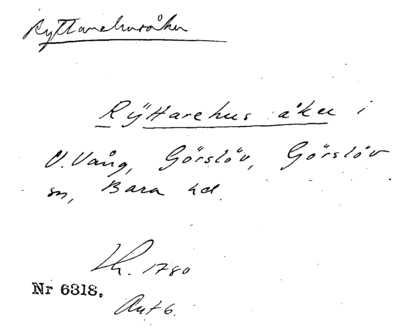 Ryttarehusåker
Rÿttarehus åker i
V. Vång, Görslöv, Görslöv
sn, Bara hd.
Lh. 1780
Nr 6318.
Akt 6.